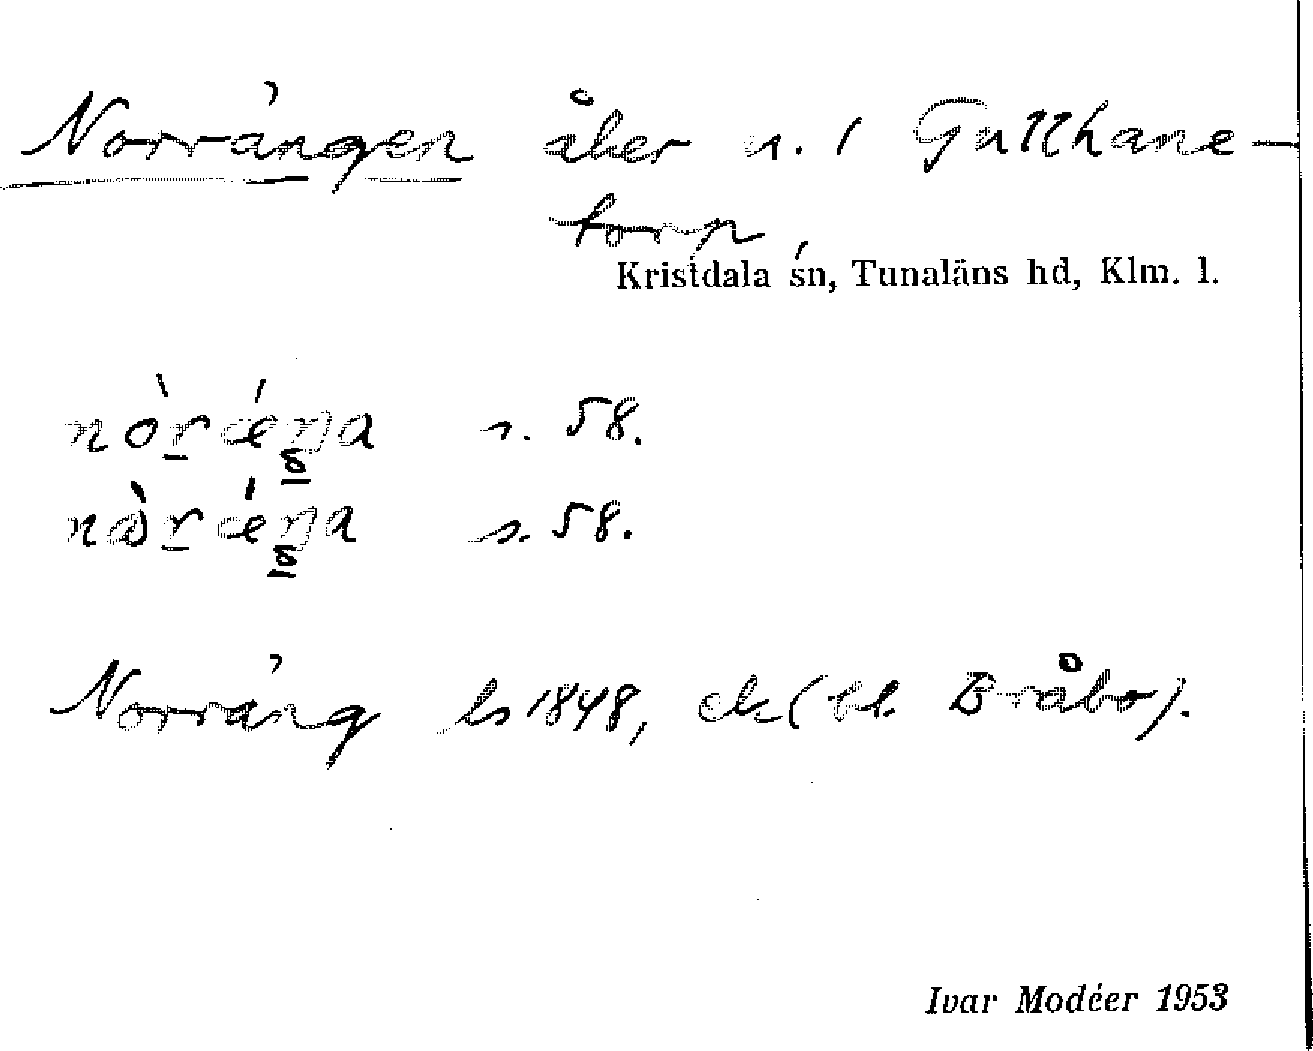 Norrängen åker n. 1 Gullhane-
torp
Kristdala sn, Tunaläns hd, Klm. l.
nòrǽŋa s. 58.
s. 58.
Norräng ls 1848, ek (bl. Bråbo).
Ivar Modéer 1953